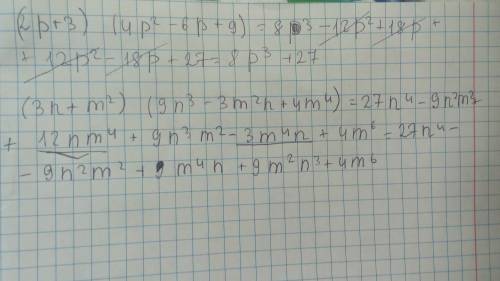 (2p+3) (4p²-6p+9) = 8p³-12p²+18p+
+ 12p²-18p+27=8p³+27
(3n+m²) (9n³-3m²n+4m⁴)=27n⁴-9n²m²
+ 12nm⁴+9n³m²-3m⁴n+4m⁶=27n⁴-
-9n²m²+9m⁴n+9m²n³+4m⁶